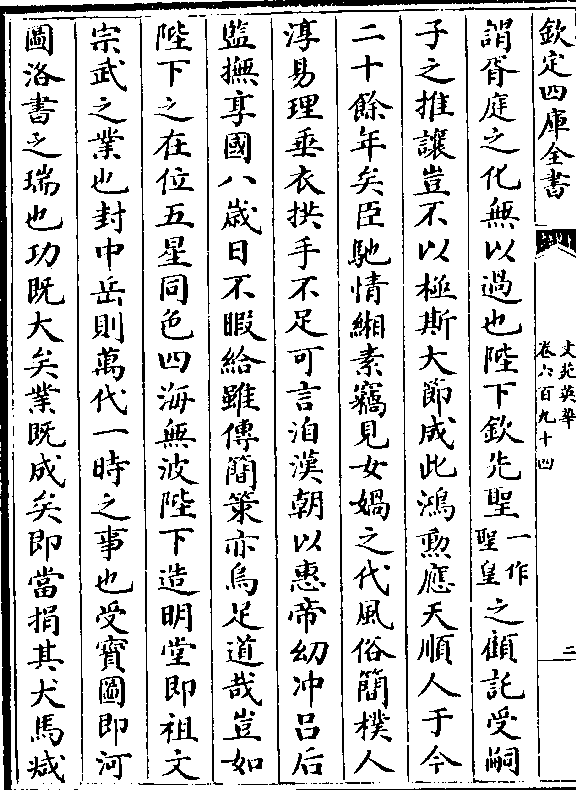 欽定四庫全書
文苑英華
卷六百九十四
二
謂胥庭之化無以過也陛下欽先聖一作聖皇之顧託受嗣
子之推讓豈不以極斯大節成此鴻勲應天順人于今
二十餘年矣臣馳情緗素竊見女媧之代風俗簡樸人
淳易理垂衣拱手不足可言洎漢朝以惠帝幼冲吕后
監撫享國八歳日不暇給雖傳簡策亦烏足道哉豈如
陛下之在位五星同色四海無波陛下造明堂即祖文
宗武之業也封中岳則萬代一時之事也受寳圖即河
圖洛書之瑞也功既大矣業既成矣即當捐其犬馬